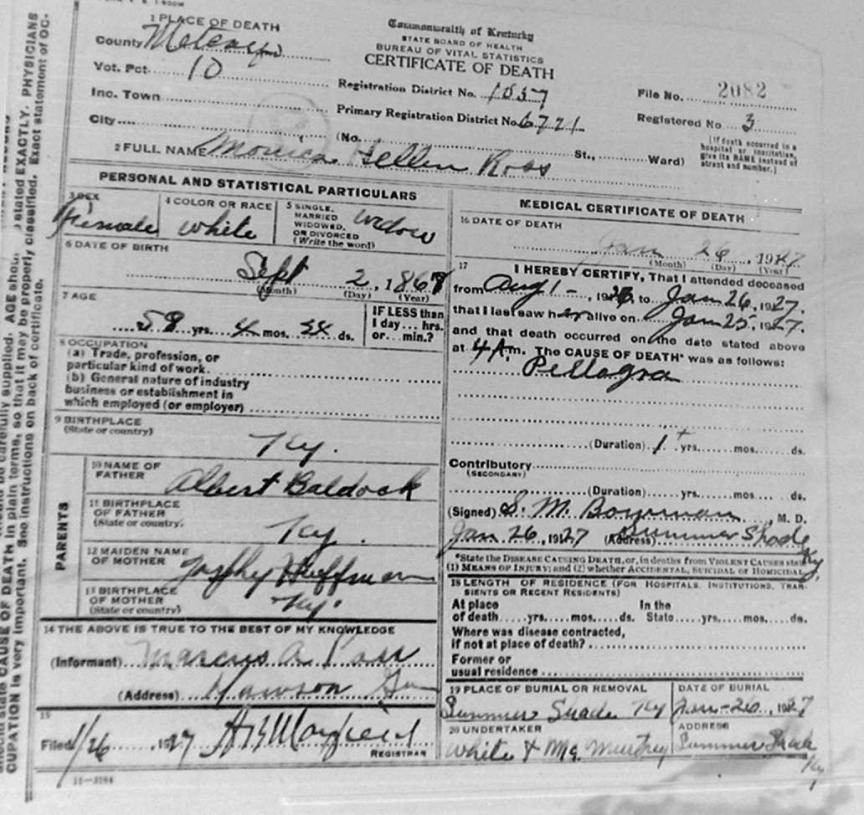 1 PLACE OF DEATH
County Metcalfe
Vot. Pct. 10
Inc. Town
City
Commonwealth of Kentucky
STATE BOARD OF HEALTH
BUREAU OF VITAL STATISTICS
CERTIFICATE OF DEATH
Registration District No. 1037
Primary Registration District No. 6721
(No. St., Ward)
File No. 2082
Registered No 3
(If death occurred in a
hospital or institution,
give its NAME instead of
street and number.)
2 FULL NAME Monica Hellen Ross
PERSONAL AND STATISTICAL PARTICULARS
3 SEX
Female
4 COLOR OR RACE
White
5 SINGLE,
MARRIED
WIDOWED,
OR DIVORCED
(Write the word)
Widow
6 DATE OF BIRTH
Sept 2, 1867
(Month) (Day) (Year)
7 AGE
58 yrs. 4 mos. 24 ds.
IF LESS than
1 day... hrs.
or... min.?
8 OCCUPATION
(a) Trade, profession, or
particular kind of work
(b) General nature of industry
business or establishment in
which employed (or employer)
9 BIRTHPLACE
(State or country)
Ky.
PARENTS
10 NAME OF
FATHER
Albert Baldock
11 BIRTHPLACE
OF FATHER
(State or country)
Ky.
12 MAIDEN NAME
OF MOTHER
Huffman
13 BIRTHPLACE
OF MOTHER
(State or country)
Ky.
14 THE ABOVE IS TRUE TO THE BEST OF MY KNOWLEDGE
(Informant) Marcus A. Ross
(Address)
15
Filed 1/26 1927 REGISTRAR
11-3184
MEDICAL CERTIFICATE OF DEATH
16 DATE OF DEATH
Jan 26, 1927
(Month) (Day) (Year)
17 I HEREBY CERTIFY, That I attended deceased
from Aug 1 - 1926 to Jan 26, 1927.
that I last saw her alive on Jan 25, 1927.
and that death occurred on the date stated above
at 4 A m. The CAUSE OF DEATH* was as follows:
Pellagra
(Duration) 1+ yrs. mos. ds.
Contributory
(SECONDARY)
(Duration) yrs. mos. ds.
(Signed) S. M. Bowman M. D.
Jan. 26, 1927 (Address) Summer Shade Ky
*State the DISEASE CAUSING DEATH, or, in deaths from VIOLENT CAUSES state
(1) MEANS OF INJURY; and (2) whether ACCIDENTAL, SUICIDAL or HOMICIDAL
18 LENGTH OF RESIDENCE (FOR HOSPITALS, INSTITUTIONS, TRAN-
SIENTS OR RECENT RESIDENTS)
At place In the
of death yrs. mos. ds. State yrs. mos. ds.
Where was disease contracted,
if not at place of death?
Former or
usual residence
19 PLACE OF BURIAL OR REMOVAL
Summer Shade Ky
DATE OF BURIAL
Jan-26, 1927
20 UNDERTAKER
White &
ADDRESS
Summer Shade
Ky